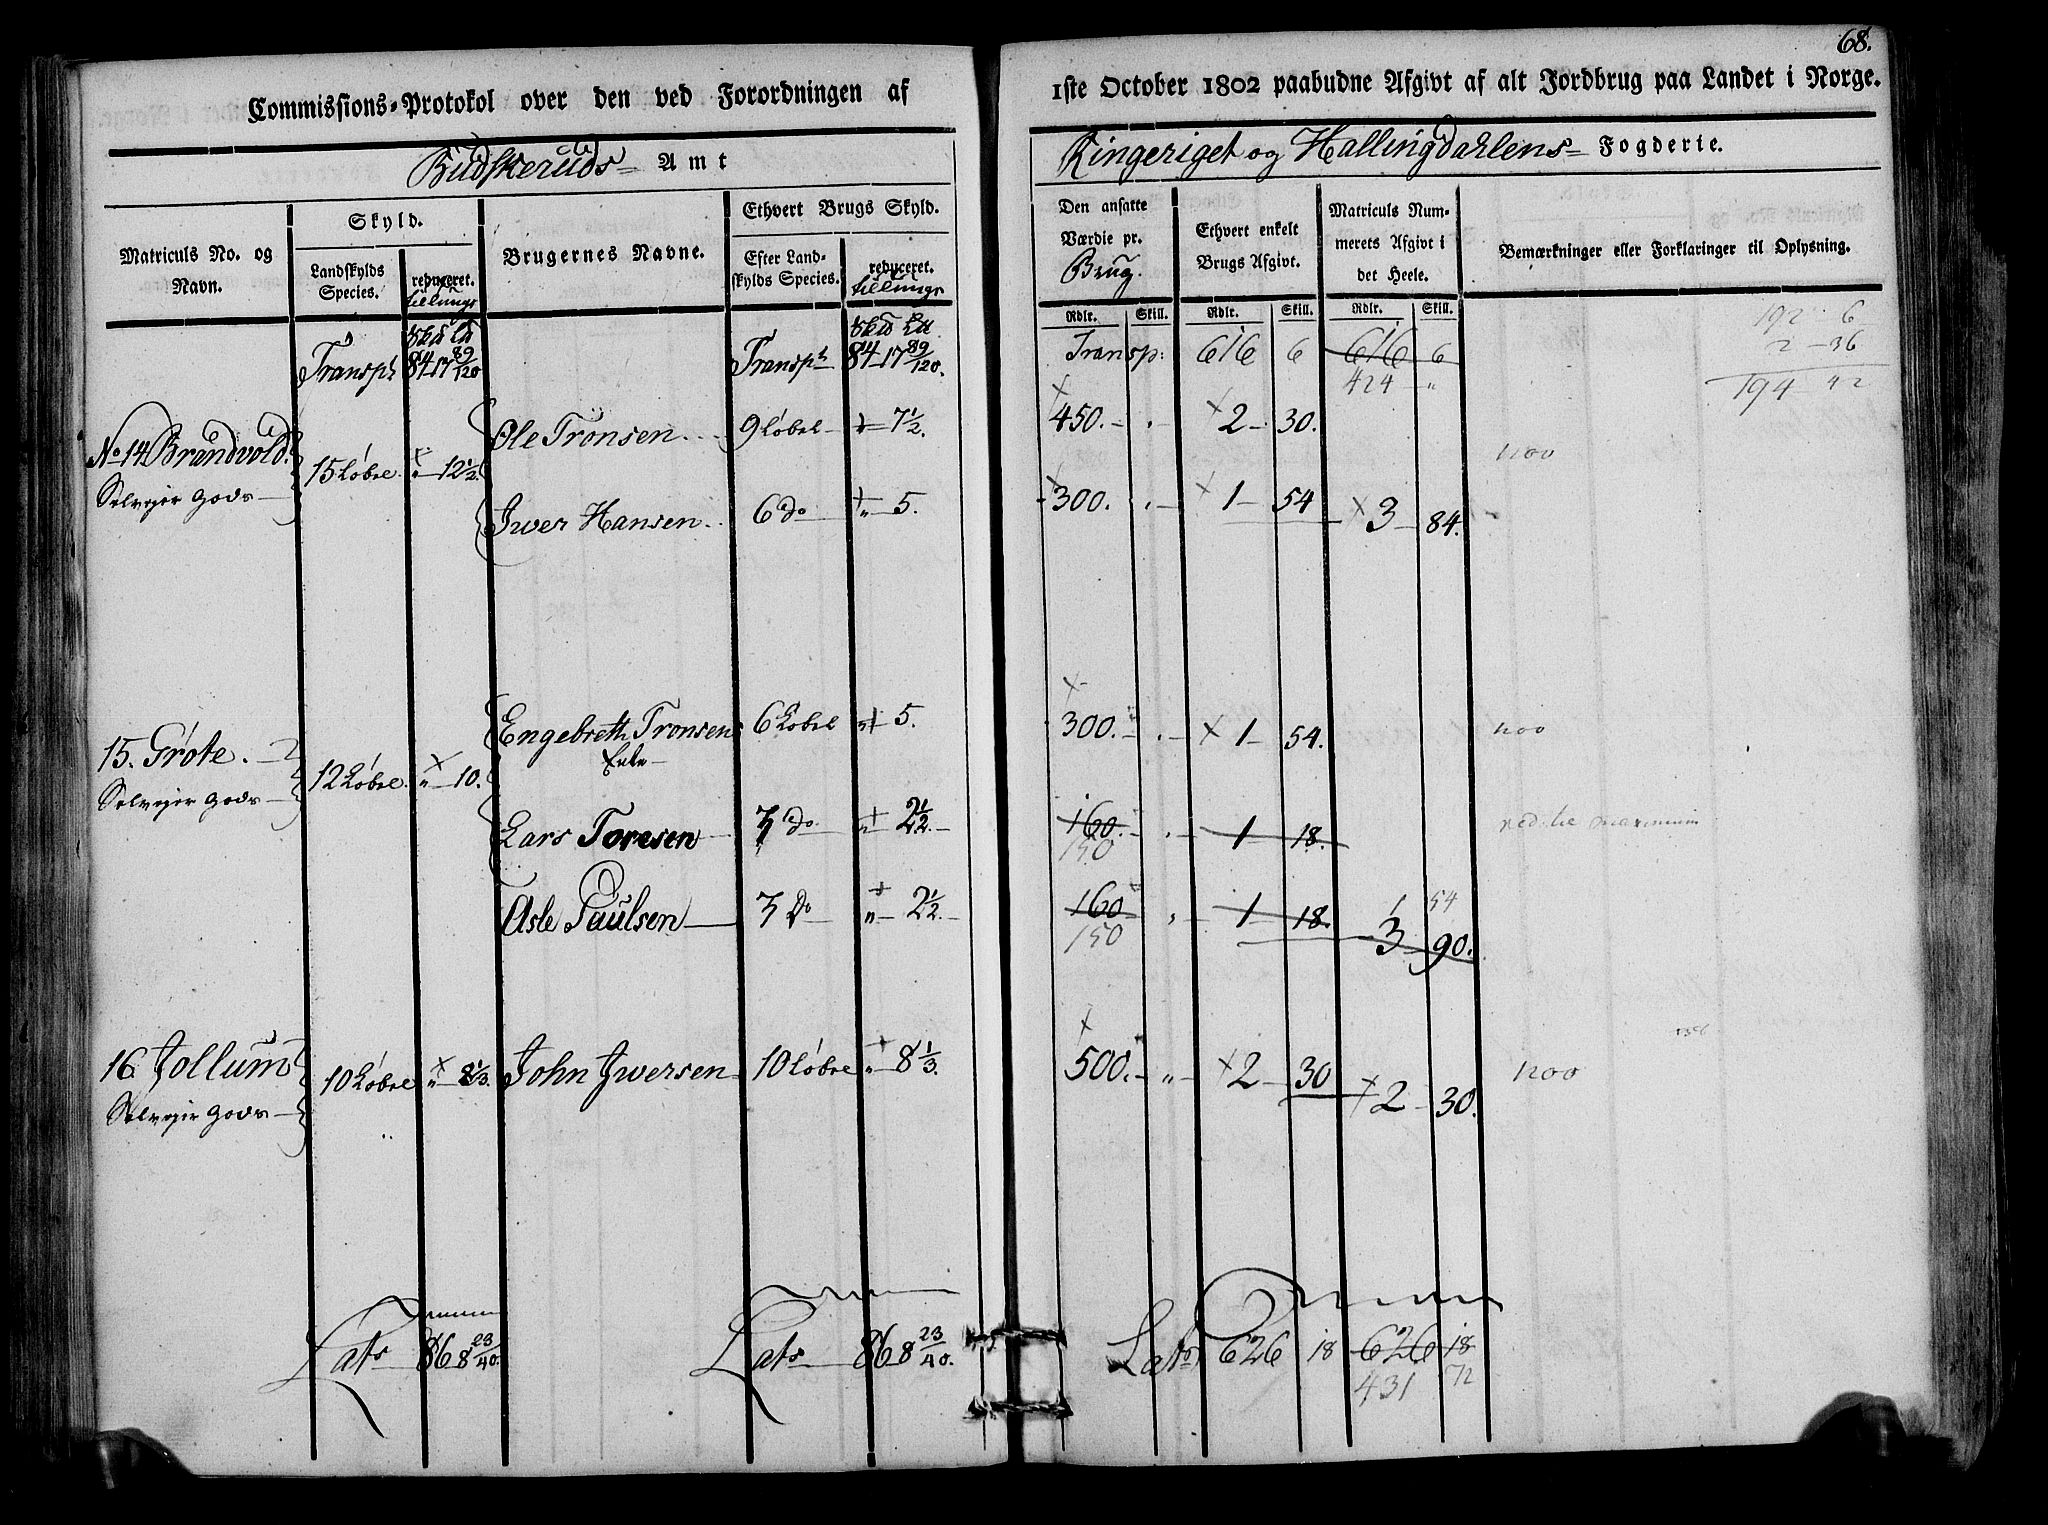 68.
Commissions-Protokol over den ved Forordningen af
1ste October 1802 paabudne Afgivt af alt Jordbrug paa Landet i Norge.
Budskeruds Amt
Ringeriget og Hallingdahlens Fogderie.
Matriculs No. og Navn.
Skyld.
Landskylds Species.
reduceret.
tillungs
Brugernes Navne.
Ethvert Brugs Skyld.
Efter Landskylds Species.
reduceret.
tillungs
Den ansatte Værdie pr. Brug.
Ethvert enkelt Brugs Afgivt.
Matriculs Nummerets Afgivt i det Heele.
Bemærkninger eller Forklaringer til Oplysning.
Rdlr. Skill. Rdlr. Skill. Rdlr. Skill.
Transpt 84 17 89/120 Transpt 84 17 89/120. Transp: 616 6 616 6
424 "
192 6
2 - 36
194 42
No 14 Brandvold. 15 Løbel. " 12 1/2. Ole Tronsen 9 Løbel 7 1/2. 450. 2 30.
Selvejer Gods
Iwer Hansen 6 do " 5. 300. 1 54 3 84.
15. Grøte. 12 Løbel. " 10. Engebreth Tronsens 6 Løbel 5. 300. 1 54.
Enke
Selvejer Gods
Lars Toresen 3 do 2 1/2. 160. 1 18.
150
Asle Paulsen 3 Do " 2 1/2. 160 1 18. 3 90.
150
1 54
16. Jollum 10 Løbel " 8 1/3. John Iwersen 10 Løbel " 8 1/3. 500. " 2 30 2 30.
Selvejer Gods
Lats 86 8 23/40. Lats 86 8 23/40. Lats 626 18 626 18
431 72